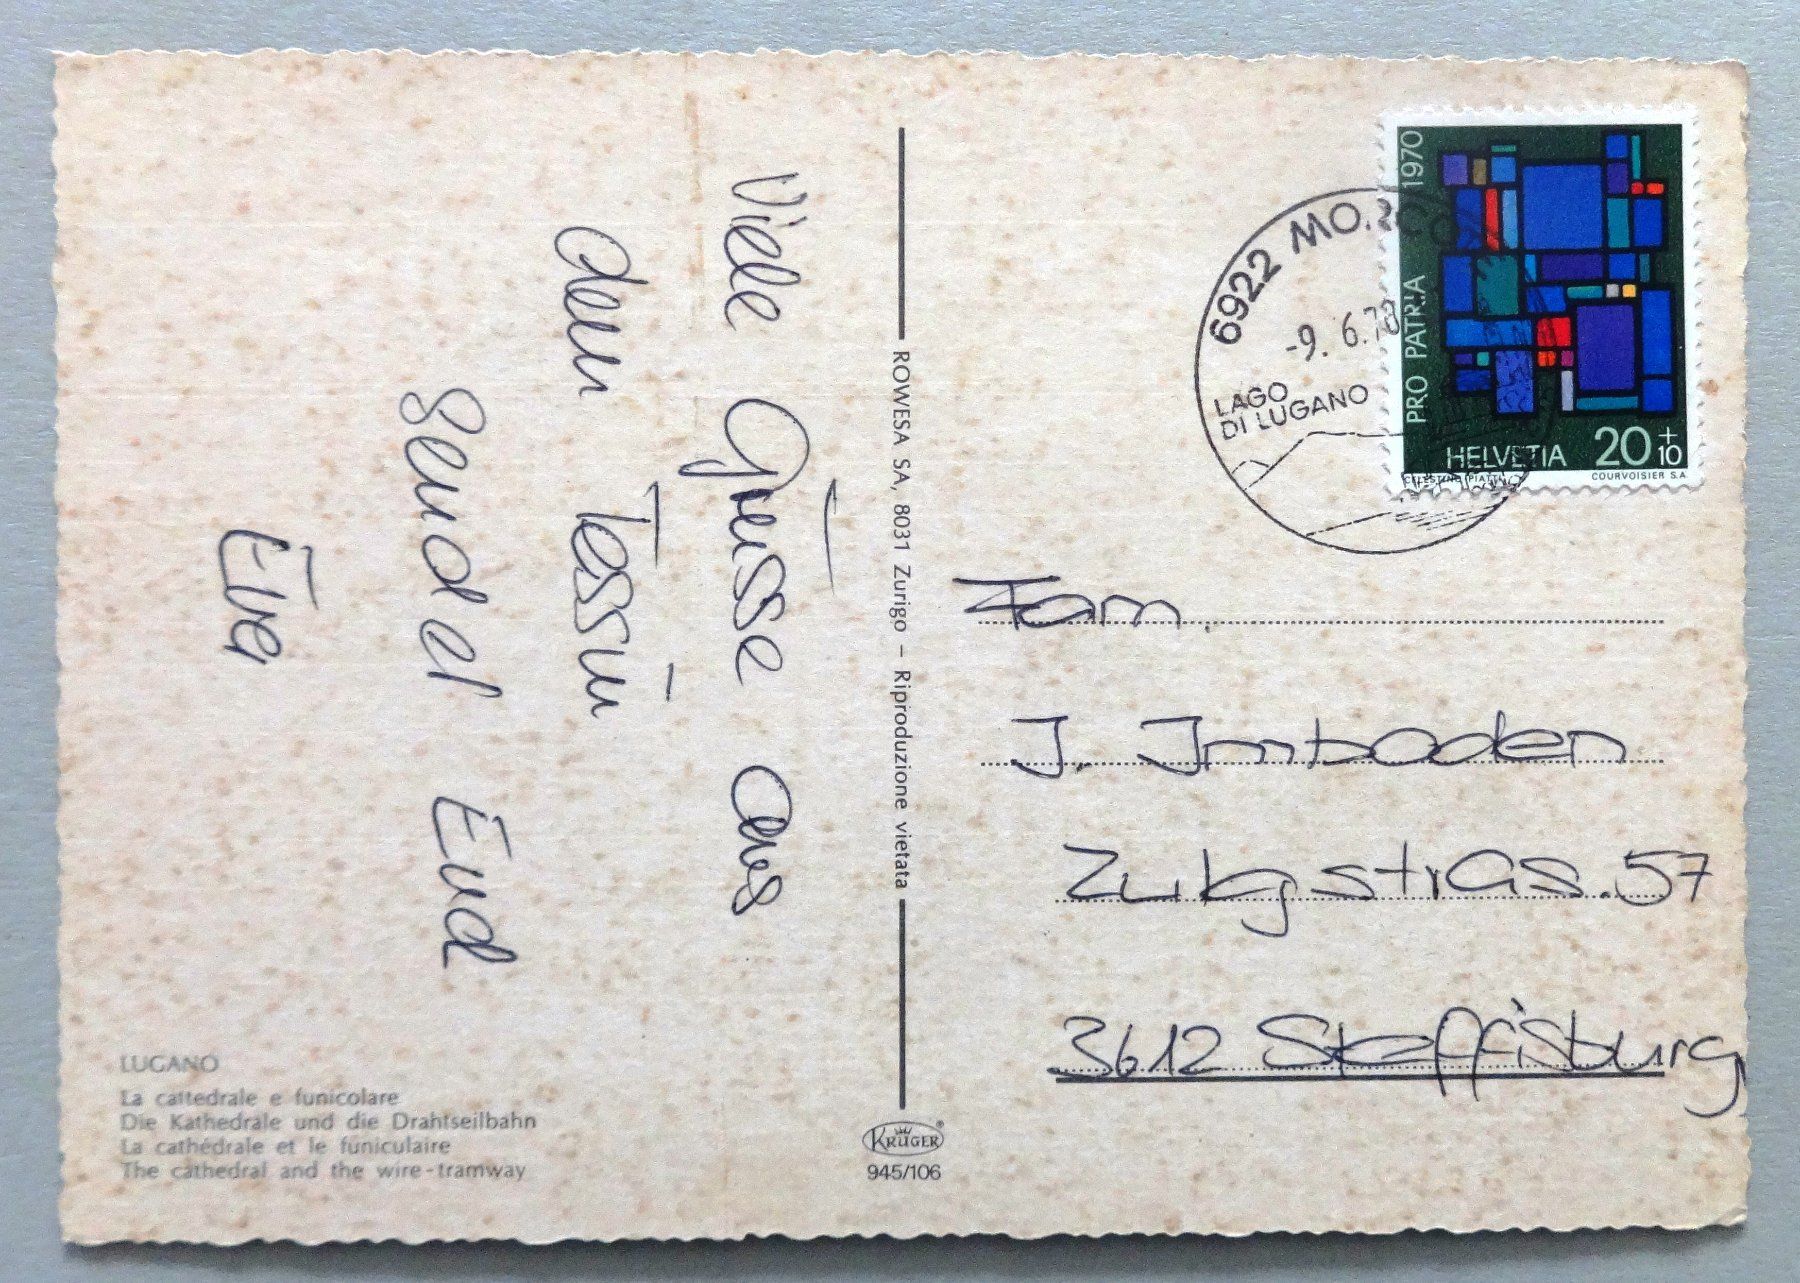 Viele Grüsse aus
dem Tessin
sendet Eud
Eva
LUGANO
La cattedrale e funicolare
Die Kathedrale und die Drahtseilbahn
La cathédrale et le funiculaire
The cathedral and the wire-tramway
ROWESA SA, 8031 Zurigo – Riproduzione vietata
KRÜGER
945/106
6922 MO
-9. 6.78
LAGO
DI LUGANO
PRO PATRIA 1970
HELVETIA 20+10
CELESTINO PIATTI COURVOISIER S.A.
Fam.
J. Imboden
Zulgstras. 57
3612 Steffisburg